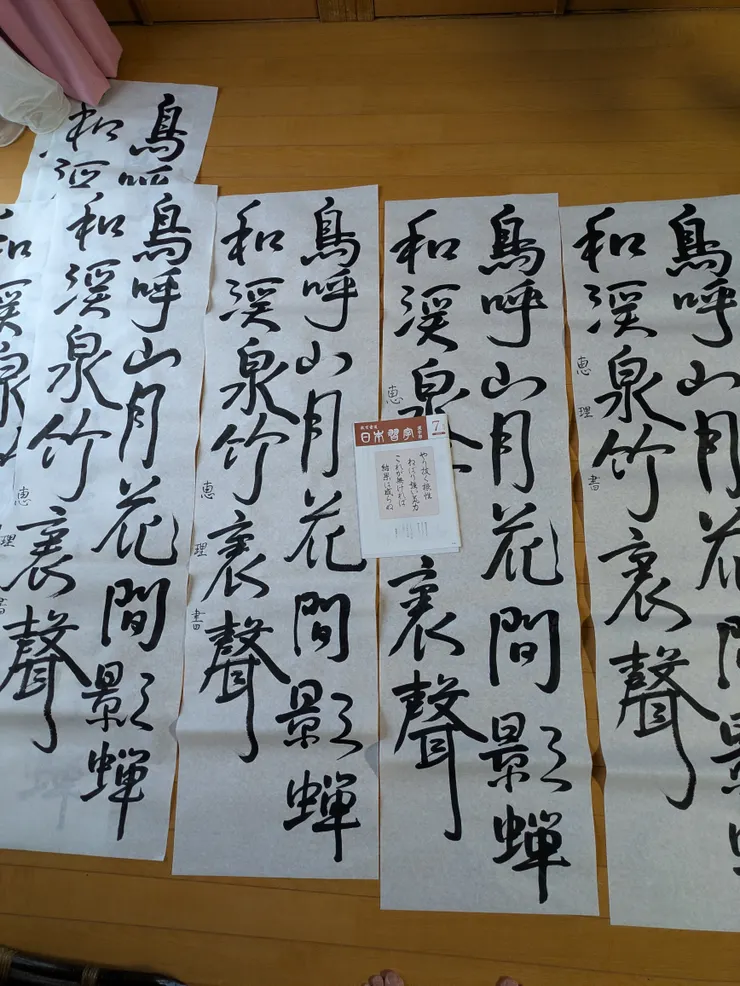 鳥呼山月花間影
和渓泉竹裏聲
恵理書
鳥呼山月花間影蝉
和渓泉
裏聲
恵
日本習字
7
やり抜く根性
ねばり強い努力
これが無ければ
結果は成らぬ
鳥呼山月花間影蝉
和渓泉竹裏聲
恵理書
鳥呼山月花間影蝉
和渓泉竹裏聲
恵理書
鳥呼
和渓
和渓泉